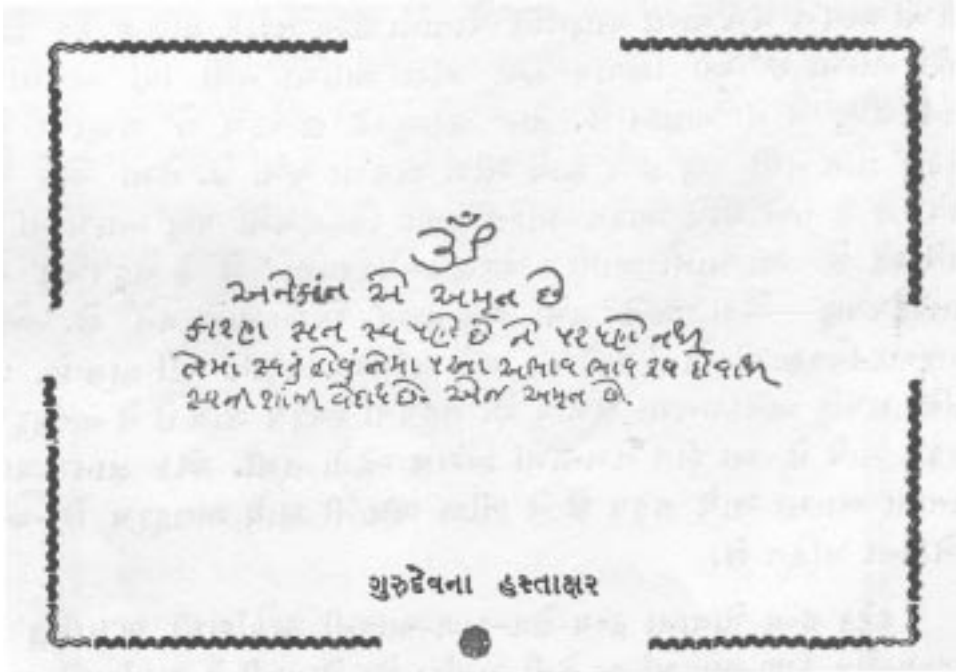 ૐ
અનેકાંત એ અમૃત છે
કારણ સત સ્વપણે છે ને પરપણે નથી
તેમાં સ્વનું હોવું તેમા પરના અભાવ ભાવ રૂપ હોવાથી
સ્વની શાંતી વેદાય છે. એજ અમૃત છે.
ગુરુદેવના હસ્તાક્ષર